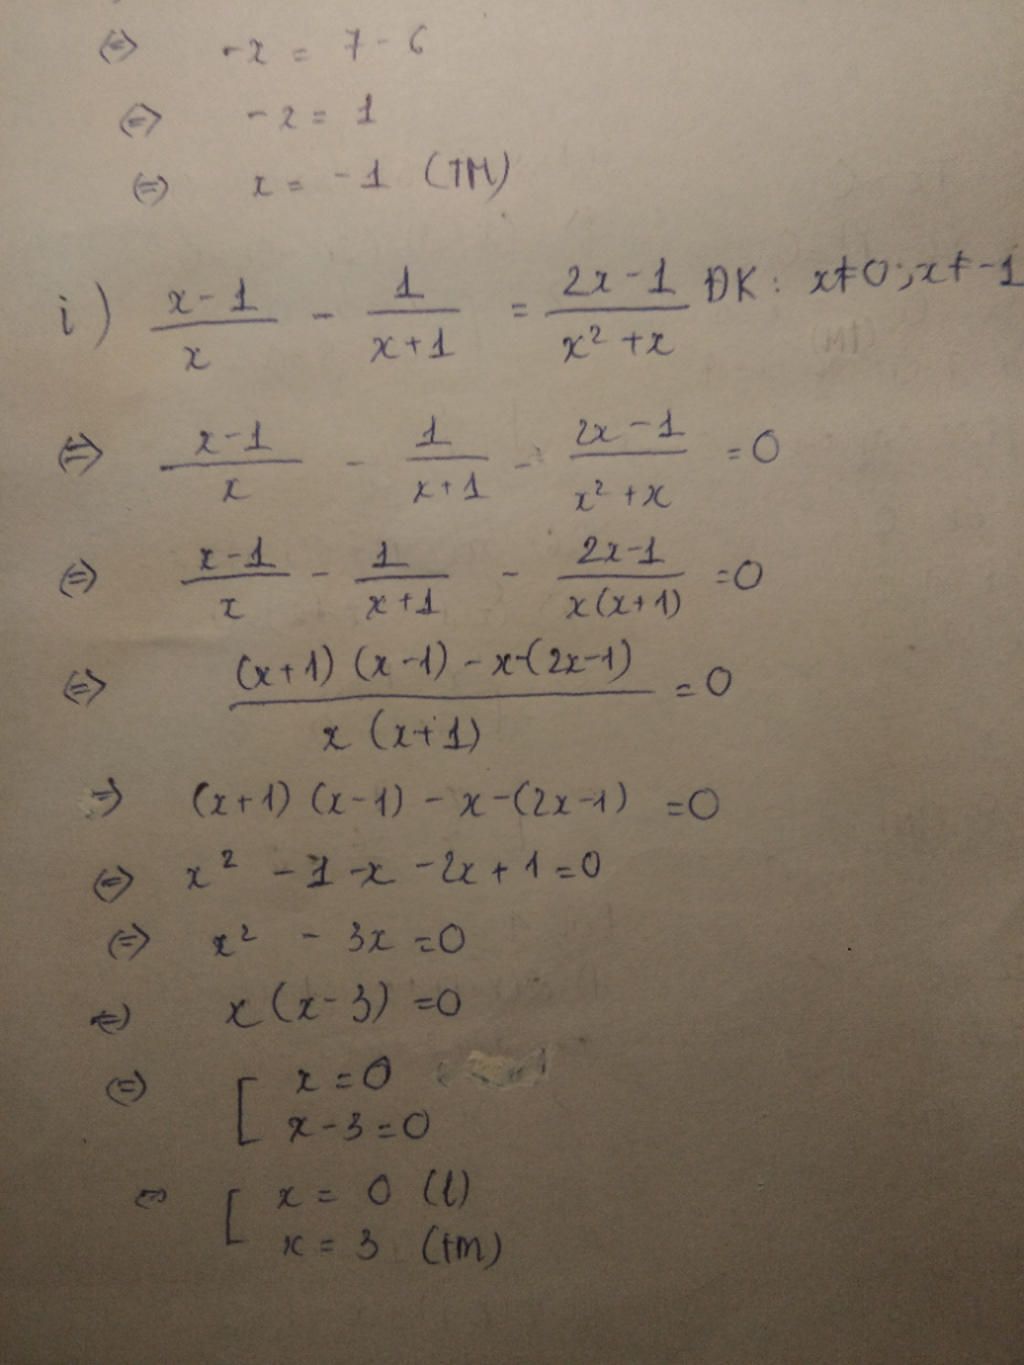 (=) -x = 7 - 6
(=) - x = 1
(=) x = - 1 (TM)
i) \frac{x-1}{x} - \frac{1}{x+1} = \frac{2x-1}{x² + x} ĐK: x≠0; x≠-1
(=) \frac{x-1}{x} - \frac{1}{x+1} - \frac{2x-1}{x²+x} = 0
(=) \frac{x-1}{x} - \frac{1}{x+1} - \frac{2x-1}{x(x+1)} = 0
(=) \frac{(x+1)(x-1) - x-(2x-1)}{x(x+1)} = 0
=) (x+1)(x-1) - x-(2x-1) = 0
(=) x² - 1 -x - 2x + 1 = 0
(=) x² - 3x = 0
(=) x(x-3) = 0
(=) [ x = 0
x - 3 = 0
(=) [ x = 0 (l)
x = 3 (tm)